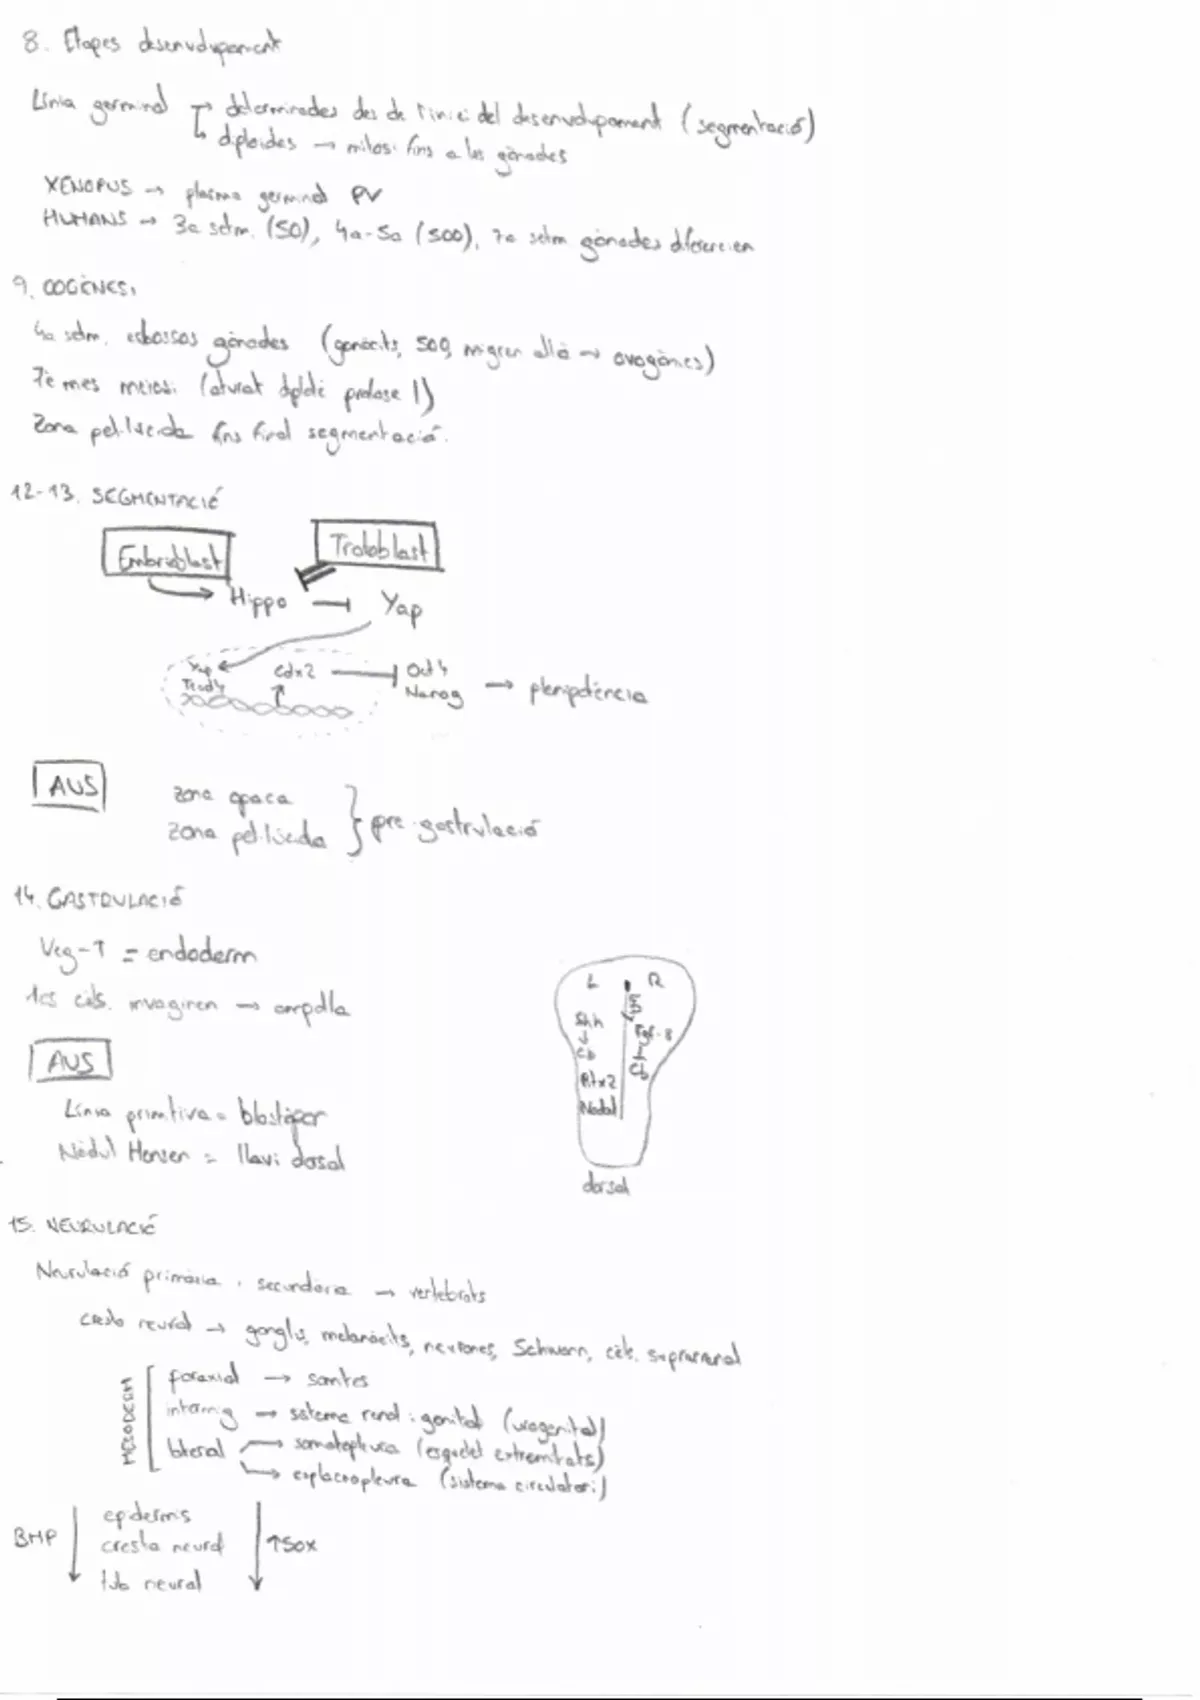 8. Etapes desenvolupament
Línia germinal → determinades des de l'inici del desenvolupament (segmentació)
↳ diploides → mitosi fins a les gònades
XENOPUS → plasma germinal PV
HUMANS → 3a setm. (50), 4a-5a (500), 7a setm gònades diferencien
9. OOGÈNESI
4a setm. esbossos gònades (gonòcits, 500, migren allà → ovogònies)
7è mes meiosi (aturat diplotè profase I)
Zona pel·lúcida fins final segmentació.
12-13. SEGMENTACIÓ
Embrioblast Trofoblast
Hippo ⊣ Yap
Yap Cdx2 ⊣ Oct4
Tead4 Nanog → pluripotència
AUS
zona opaca
zona pel·lúcida } pre-gastrulació
14. GASTRULACIÓ
Veg-T = endoderm
1es cèls. invaginen → ampolla
AUS
Línia primitiva = blastòpor
Nòdul Hensen = llavi dorsal
L R
Shh Fgf-8
↓
Cb Cb
Pitx2
Nodal
dorsal
15. NEURULACIÓ
Neurulació primària i secundària → vertebrats
cresta neural → ganglis, melanòcits, neurones, Schwann, cèls. suprarrenal
MESODERM
paraxial → somites
intermig → sistema renal i genital (urogenital)
lateral → somatopleura (esquelet extremitats)
→ esplacnopleura (sistema circulatori)
BMP
epidermis
cresta neural ↑Sox
tub neural